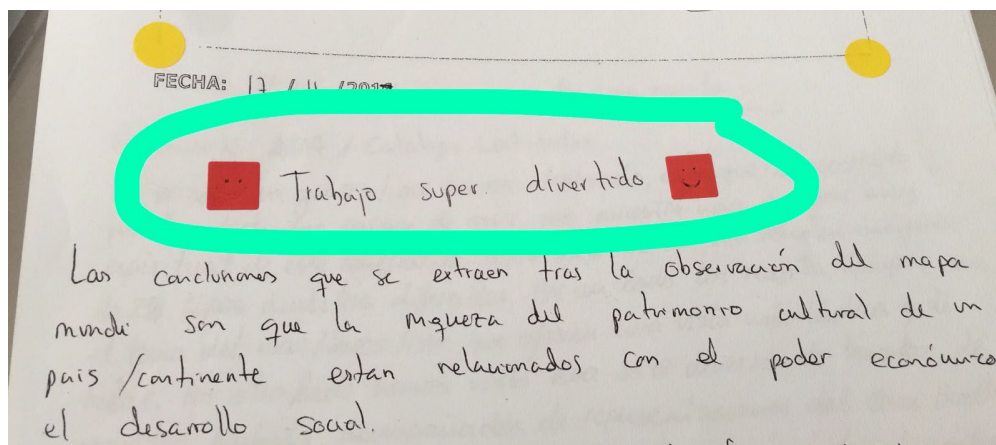 FECHA: 17 / 11 /2017
Trabajo super divertido
Las conclusiones que se extraen tras la observación del mapa
mundi son que la riqueza del patrimonio cultural de un
pais /continente estan relacionados con el poder económico
el desarrollo social.